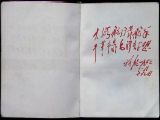 大海航行靠舵手
干革命靠毛泽东思想
林彪